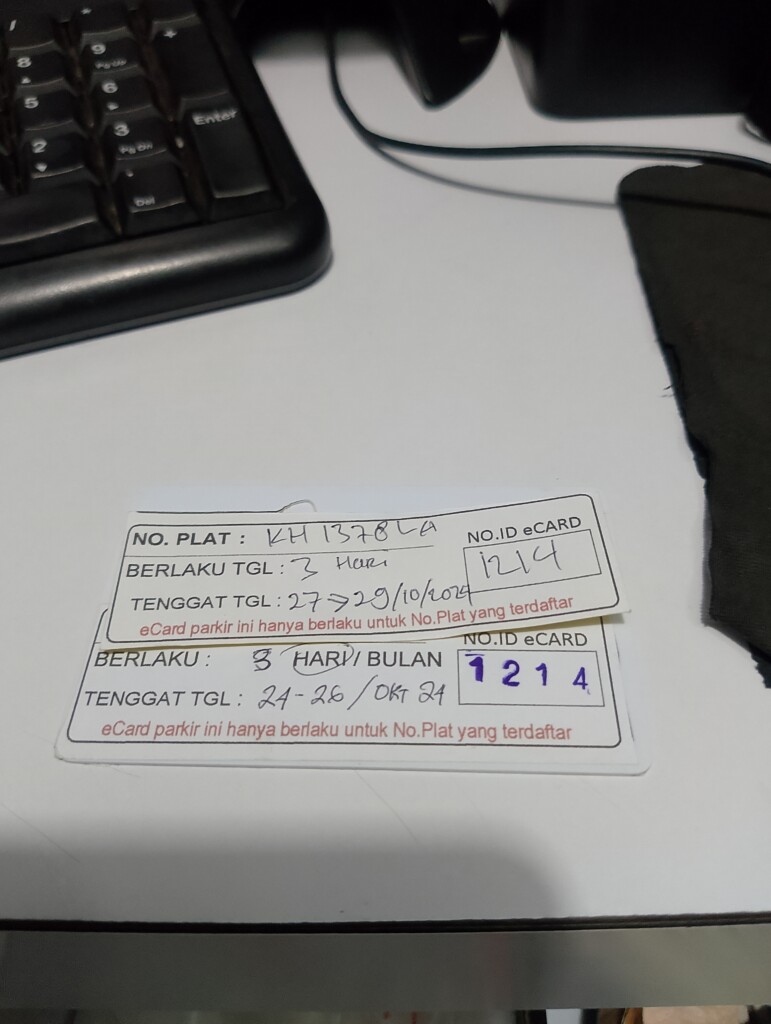 /
*
+
8
9
PgUp
5
6
Enter
2
3
Pg Dn
.
Del
NO. PLAT : KH 1378 LA
NO.ID eCARD
BERLAKU TGL : 3 Hari
1214
TENGGAT TGL : 27 → 29/10/2024
eCard parkir ini hanya berlaku untuk No.Plat yang terdaftar
NO.ID eCARD
BERLAKU : 3 HARI / BULAN
1214
TENGGAT TGL : 24-26 / OKT 24
eCard parkir ini hanya berlaku untuk No.Plat yang terdaftar